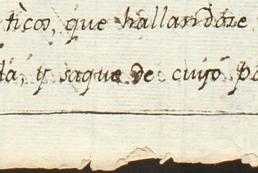 ticos, que hallandose
da, y saque de cuyo po